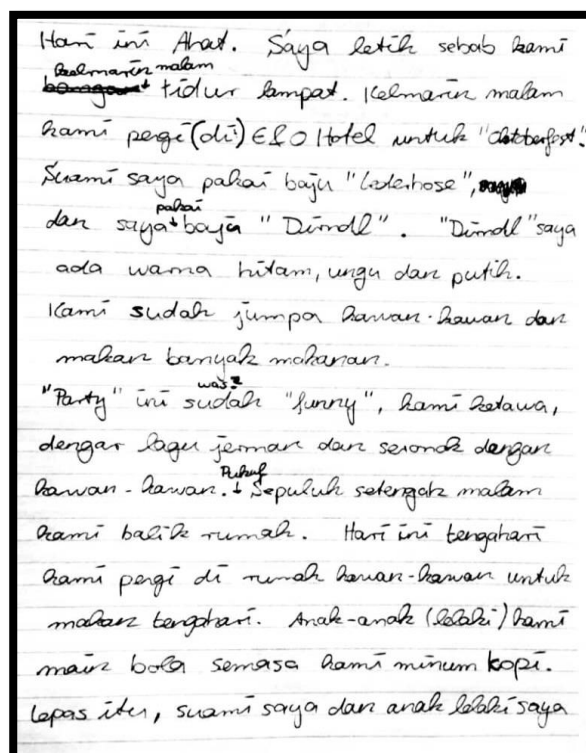 Hari ini Ahat. Saya letih sebab kami
kelmarin malam
tidur lampat. Kelmarin malam
kami pergi (di) E&O Hotel untuk "Oktoberfest".
Suami saya pakai baju "Lederhose",
pakai
dan saya baju "Dirndl". "Dirndl" saya
ada warna hitam, ungu dan putih.
Kami sudah jumpa kawan-kawan dan
makan banyak makanan.
was?
"Party" ini sudah "funny", kami ketawa,
dengar lagu jerman dan seronok dengan
Pukul
kawan-kawan. Sepuluh setengah malam
kami balik rumah. Hari ini tengahari
kami pergi di rumah kawan-kawan untuk
makan tengahari. Anak-anak (lelaki) kami
main bola semasa kami minum kopi.
Lepas itu, suami saya dan anak lelaki saya